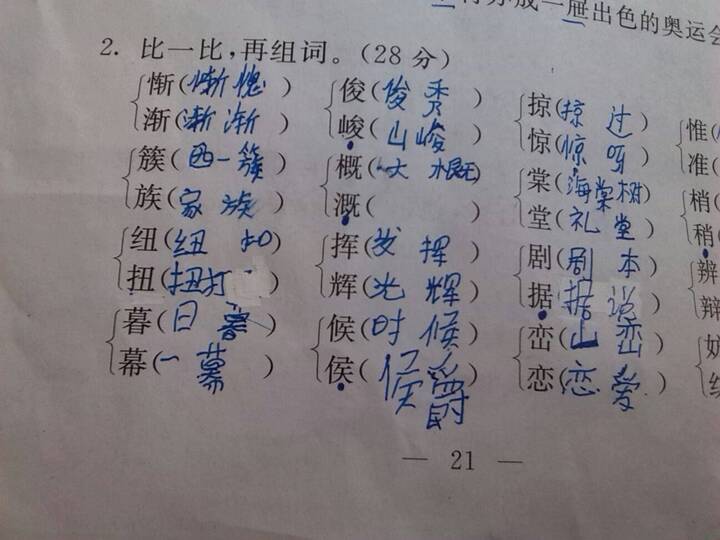 成一册出色的奥运会
2. 比一比，再组词。(28 分)
惭(惭愧) 俊(俊秀) 掠(掠过) 惟(
渐(渐渐) 峻(山峻) 惊(惊呀) 准(
簇(一簇) 概(大概) 棠(海棠树) 梢(
族(家族) 溉( ) 堂(礼堂) 稍(
纽(纽扣) 挥(发挥) 剧(剧本) 辨
扭(扭打) 辉(光辉) 据(据说) 辩
暮(日暮) 候(时候) 峦(山峦)
幕(一幕) 侯(侯爵) 恋(恋爱)
— 21 —